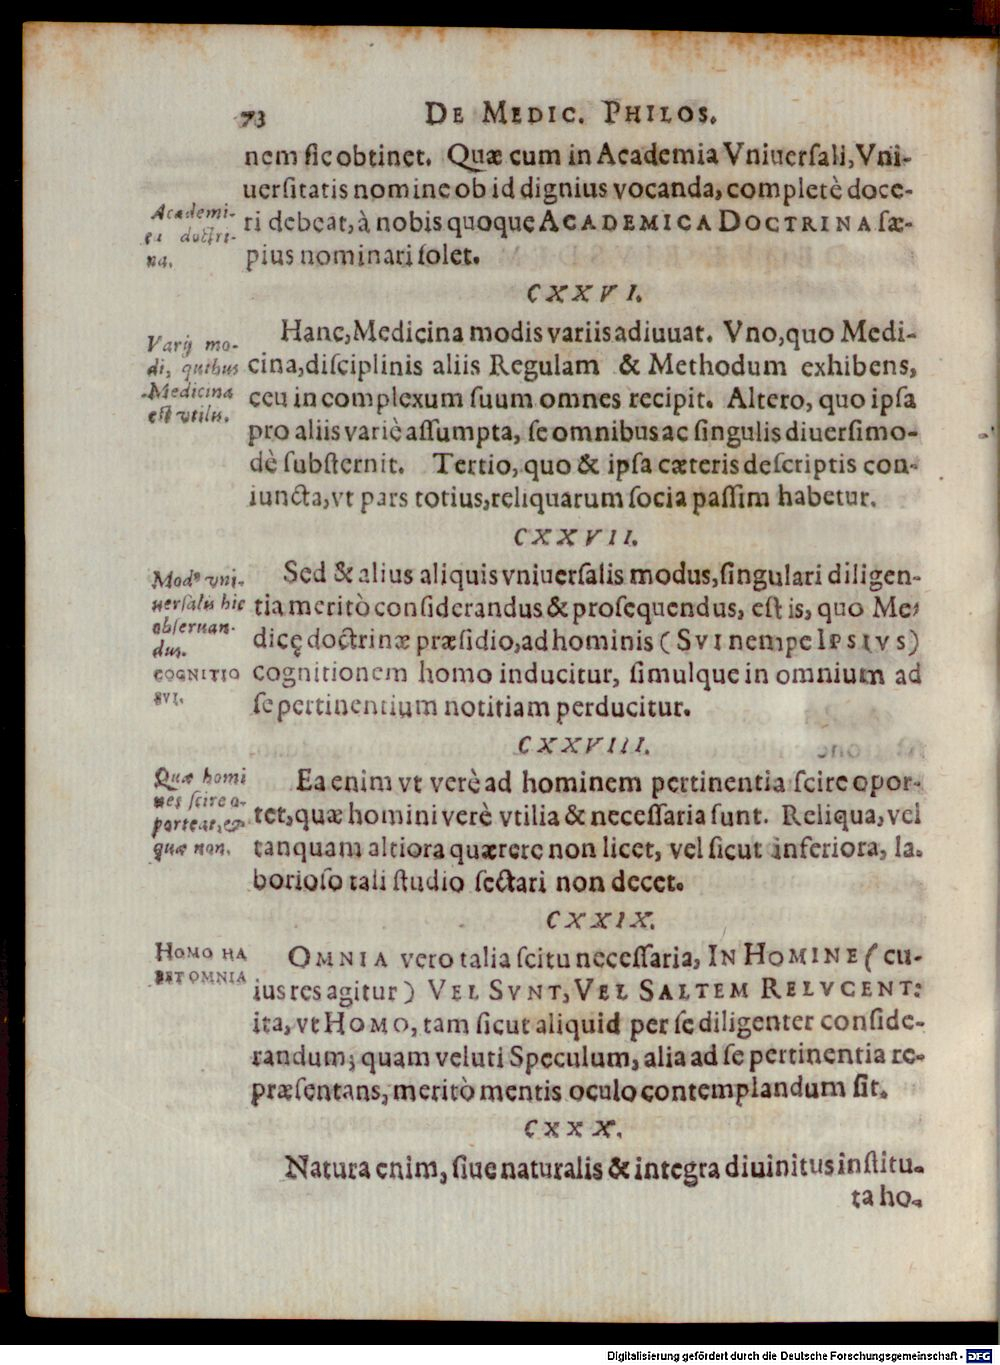 73 DE MEDIC. PHILOS.
nem ſic obtinet. Quæ cum in Academia Vniuerſali, Vni-
uerſitatis nomine ob id dignius vocanda, completè doce-
ri debeat, à nobis quoque ACADEMICA DOCTRINA ſæ-
pius nominari ſolet.
Academi-
ca doctri-
na.
CXXVI.
Hanc, Medicina modis variis adiuuat. Vno, quo Medi-
cina, diſciplinis aliis Regulam & Methodum exhibens,
ceu in complexum ſuum omnes recipit. Altero, quo ipſa
pro aliis variè aſſumpta, ſe omnibus ac ſingulis diuerſimo-
dè ſubſternit. Tertio, quo & ipſa cæteris deſcriptis con-
iuncta, vt pars totius, reliquarum ſocia paſſim habetur.
Varij mo-
di, quibus
Medicina
eſt vtilis.
CXXVII.
Sed & alius aliquis vniuerſalis modus, ſingulari diligen-
tia meritò conſiderandus & proſequendus, eſt is, quo Me-
dicę doctrinæ præſidio, ad hominis (SVI nempe IPSIVS)
cognitionem homo inducitur, ſimulque in omnium ad
ſe pertinentium notitiam perducitur.
Modꝰ vni-
uerſalis hic
obſeruan-
dus.
COGNITIO
SVI.
CXXVIII.
Ea enim vt verè ad hominem pertinentia ſcire opor-
tet, quæ homini verè vtilia & neceſſaria ſunt. Reliqua, vel
tanquam altiora quærere non licet, vel ſicut inferiora, la-
borioſo tali ſtudio ſectari non decet.
Quæ homi
nes ſcire o-
porteat, &
quæ non.
CXXIX.
OMNIA vero talia ſcitu neceſſaria, IN HOMINE (cu-
ius res agitur) VEL SVNT, VEL SALTEM RELVCENT:
ita, vt HOMO, tam ſicut aliquid per ſe diligenter conſide-
randum; quam veluti Speculum, alia ad ſe pertinentia re-
præſentans, meritò mentis oculo contemplandum ſit.
HOMO HA
BET OMNIA
CXXX.
Natura enim, ſiue naturalis & integra diuinitus inſtitu-
ta ho-
Digitalisierung gefördert durch die Deutsche Forschungsgemeinschaft - DFG